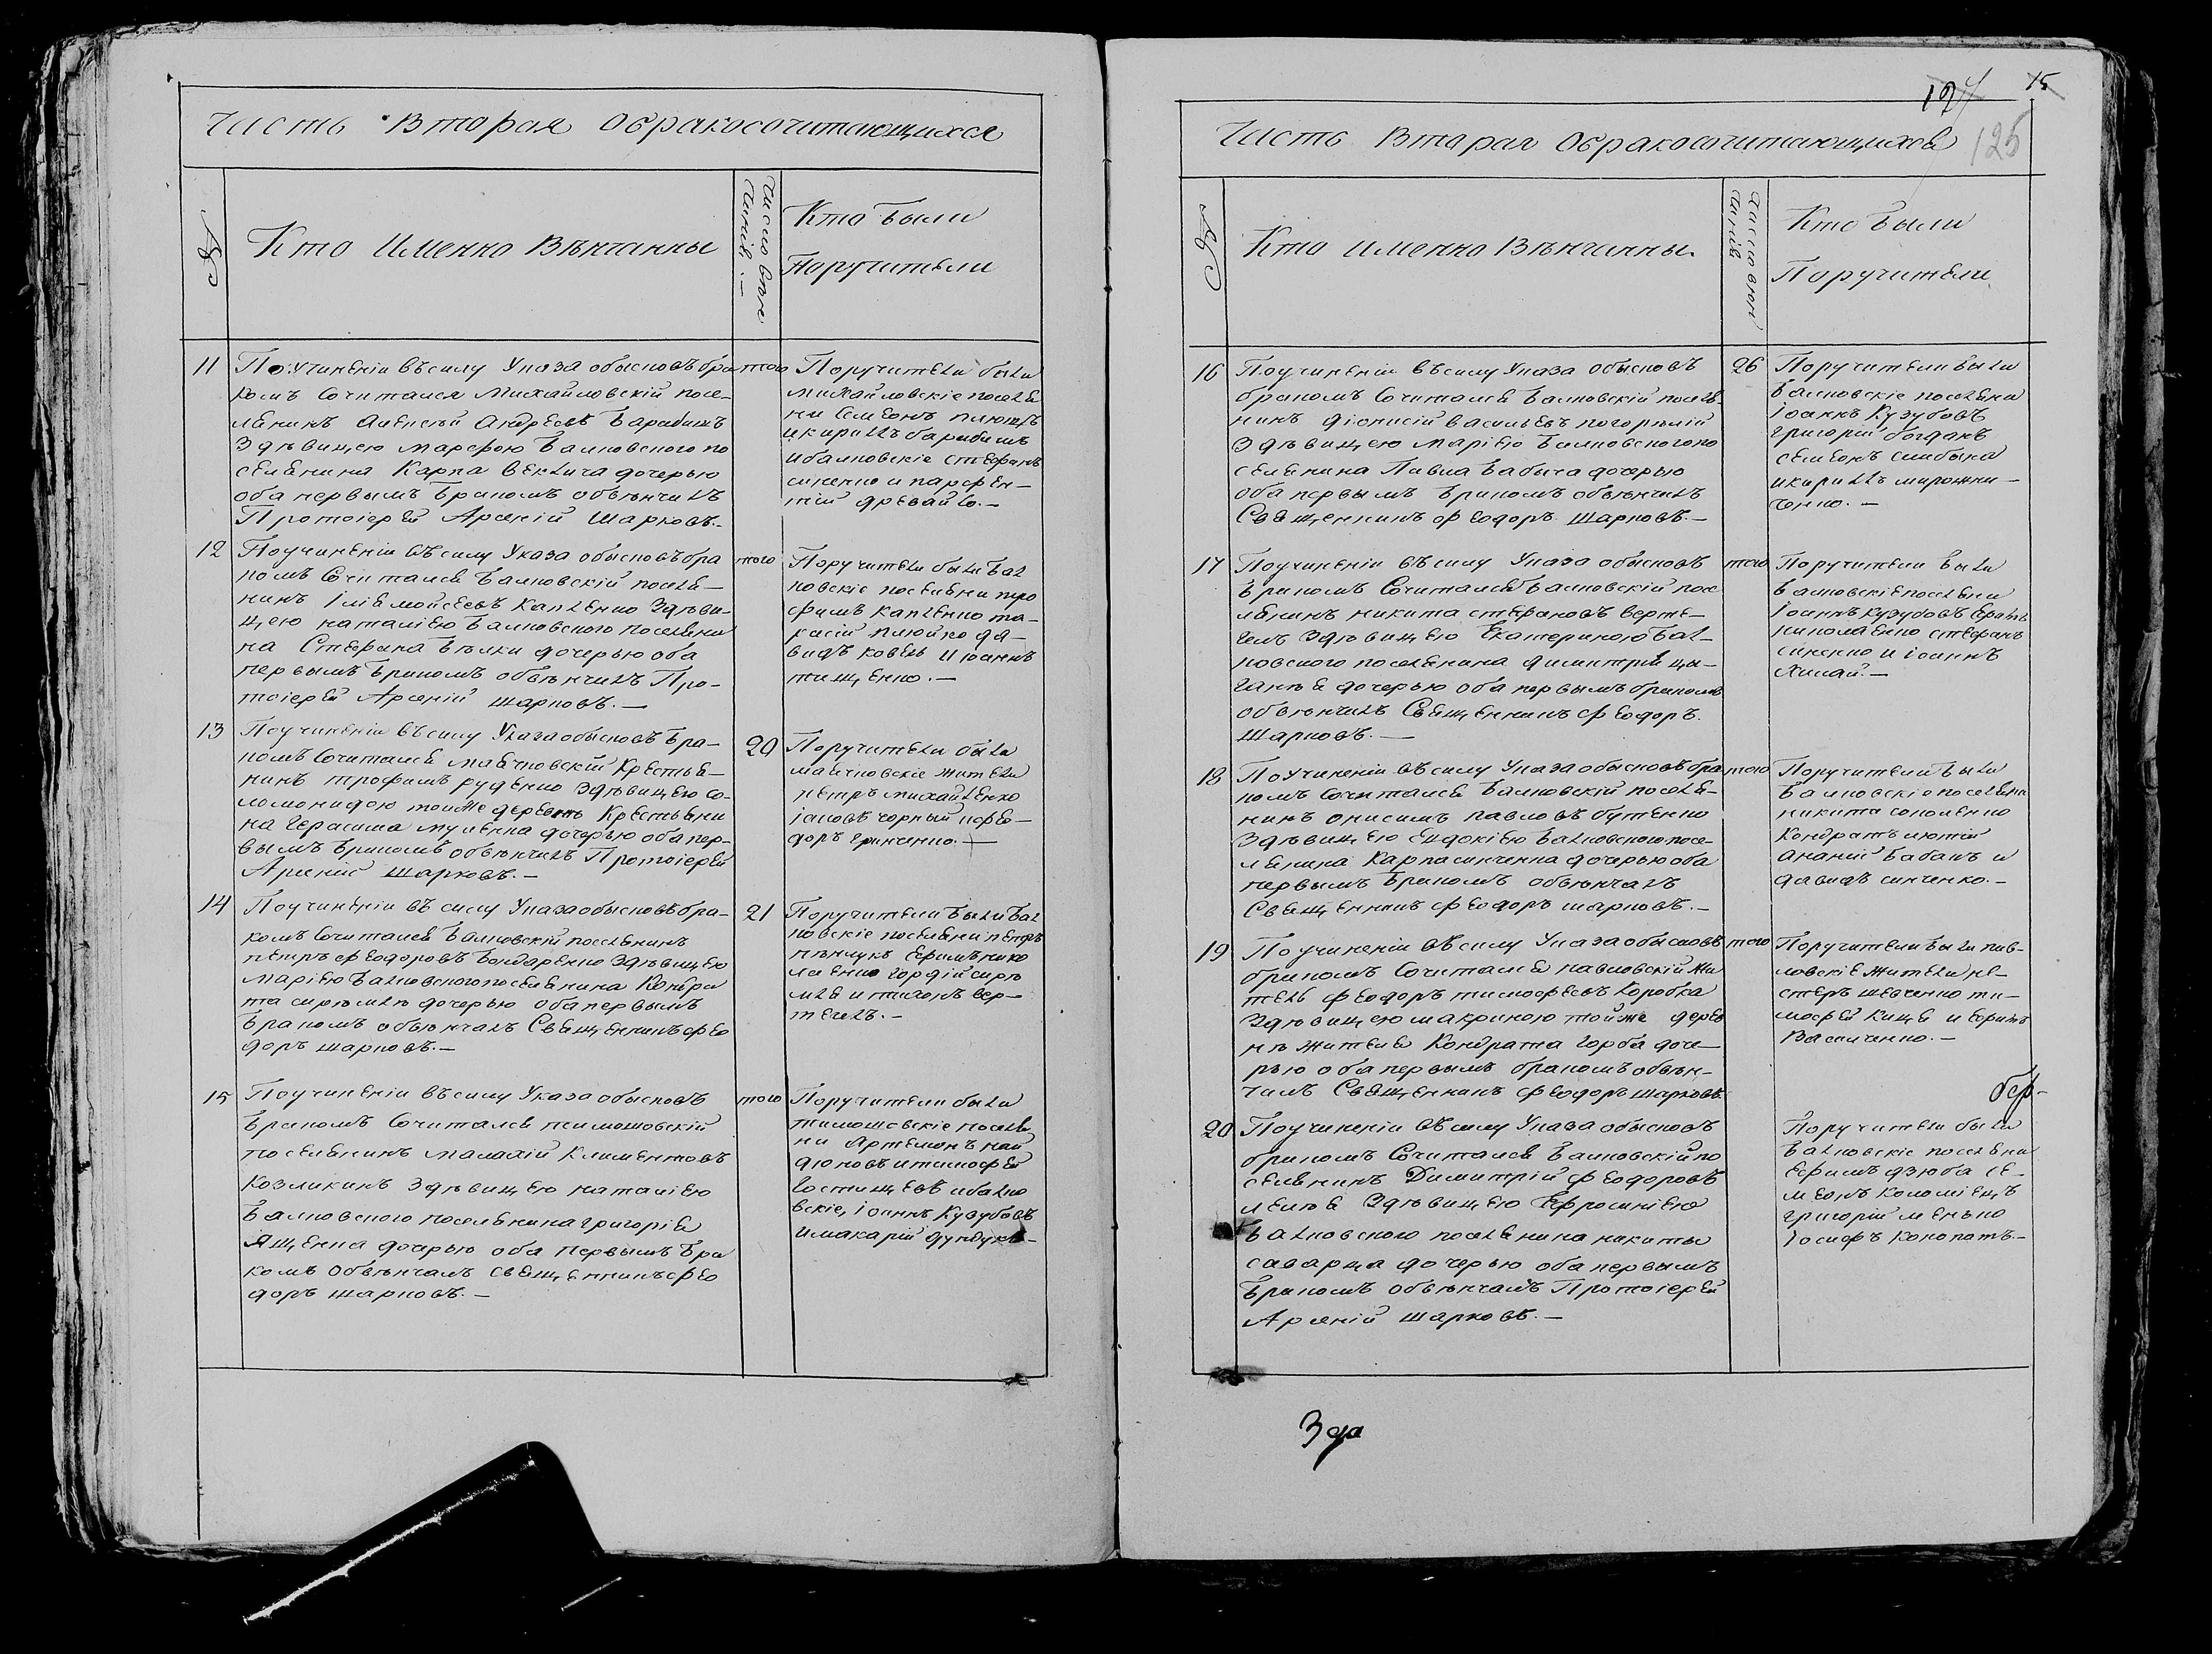 Часть Вторая Обракосочитающихся
№
Кто Именно Вѣнчанны
Число вѣн
чаній. —
Кто были
Поручители
11
По учиненіи въсилу Указа обысковъ бра
комъ Сочитался Михайловскій посе-
лянинъ Алексѣй Андреевъ Барабашъ
Здѣвицею Марфою Балковского по
селянина Карпа Векличa дочерью
оба первымъ бракомъ обвѣнчилъ
Протоіерей Арсеній Шарковъ. -
того
Поручители были
михайловскіе поселя
ни Семеонъ
икириллъ барабашъ
ибалковскіе стефанъ
синенко и парфен-
тій древайло. -
12
Поучиненіи въсилу Указа обысковъ бра
комъ Сочитался Балковскій поселя-
нинъ Ілія мойсеевъ Капленко Здѣви-
цею наталіею Балковского поселяни
на Стефана бѣлки дочерью оба
первымъ бракомъ обвѣнчилъ Про-
тоіерей Арсеній шарковъ. -
того
Поручители были бал
ковскіе поселяни тро
фимъ капленко та-
расій плюйко да-
видъ ковель иіоаннъ
тищенко. -
13
Поучиненіи въсилу Указа обысковъ бра-
комъ Сочитался маячковскій Крестья-
нинъ трофимъ руденко Здѣвицею со-
ломонидою тойже деревнѣ Крестьяни
на герасима муленка дочерью оба пер-
вымъ бракомъ обвѣнчилъ Протоіерей
Арсеній шарковъ. -
20
Поручители были
маячковскіе жители
петръ михайленко
іаковъ чорный ифео-
доръ гринченко. -
14
Поучиненіи въ силу Указа обысковъ бра-
комъ Сочитался Балковскій поселянинъ
петръ феодоровъ бондаренко Здѣвицею
маріею Балковского поселянина Кондра
та сиромлю дочерью оба первымъ
бракомъ обвѣнчалъ Священникъ фео
доръ шарковъ. -
21
Поручители были бал
ковскіе поселяни петръ
Ефимъ нико
лаенко гордій сиро
мля и тихонъ вер-
тегелъ. -
15
Поучиненіи въсилу Указа обысковъ
бракомъ Сочитался тимошовскій
поселянинъ малахій климентовъ
Козликинъ Здѣвицею наталіею
Балковского поселянина григорія
Ященка дочерью оба первымъ бра
комъ Обвѣнчалъ священникъ фео
доръ шарковъ. -
того
Поручители были
тимошовскіе поселя
ни Артемонъ най
дюновъ итимофей
Гостищевъ ибалко
вскіе, іоаннъ Кузубовъ
имакарій дундукъ -
124
15
125
Часть Вторая Обракосочитающихся
№
Кто именно Вѣнчанны.
Число вѣн
чаній
Кто были
Поручители
16
Поучиненіи въсилу Указа обысковъ
бракомъ Сочитался Балковскій поселя-
нинъ діонисій васильевъ погорѣлій
Здѣвицею маріею Балковского по
селянина Павла бабича дочерью
оба первымъ бракомъ обвѣнчилъ
Священникъ феодоръ Шарковъ. -
26
Поручители были
балковскіе поселяни
іоаннъ Кузубовъ
григорій богданъ
семеонъ
икириллъ мирошни-
ченко. -
17
Поучиненіи въсилу Указа обысковъ
бракомъ Сочитался Балковскій посе
лянинъ никита стефановъ верте-
гелъ Здѣвицею Екатериною бал-
ковского поселянина димитрія цы-
ганка дочерью оба первымъ бракомъ
обвѣнчилъ Священникъ феодоръ.
Шарковъ. -
того
Поручители были
балковскіе поселяни
іоаннъ кузубовъ Ефимъ
николаенко стефанъ
синенко и іоаннъ
18
Поучиненіи въсилу Указа обысковъ бра
комъ Сочитался Балковскій поселя-
нинъ онисимъ павловъ бутенко
Здѣвицею Евдокіею балковского посе-
лянина Карпа синченка дочерью оба
первымъ бракомъ обвѣнчалъ
Священникъ феодоръ шарковъ. -
того
Поручители были
балковскіе поселяни
никита соколенко
Кондратъ лютій
ананій бабакъ и
давидъ синченко. -
19
Поучиненіи въсилу Указа обысковъ
бракомъ Сочитался павловскій жи
тель феодоръ тимофеевъ Коробка
Здѣвицею макриною тойже дерев
нѣ жителя Кондрата горба доче-
рью оба первымъ бракомъ обвѣн-
чилъ Священникъ феодоръ шарковъ.
того
Поручители были пав-
ловскіе жители не-
стеръ шевченко ти-
мофей Кица и Ефимъ
Василченко. -
20
Поучиненіи въсилу Указа обысковъ
бракомъ Сочитался Балковскій по
селянинъ Димитрій феодоровъ
Здѣвицею Ефросиніею
балковского поселянина никиты
саварца дочерью оба первымъ
бракомъ обвѣнчалъ Протоіерей
Арсеній шарковъ. -
Поручители были
балковскіе поселяни
Ефимъ дзюба се-
меонъ коломіецъ
григорій менько
Іосифъ Конопатъ. -